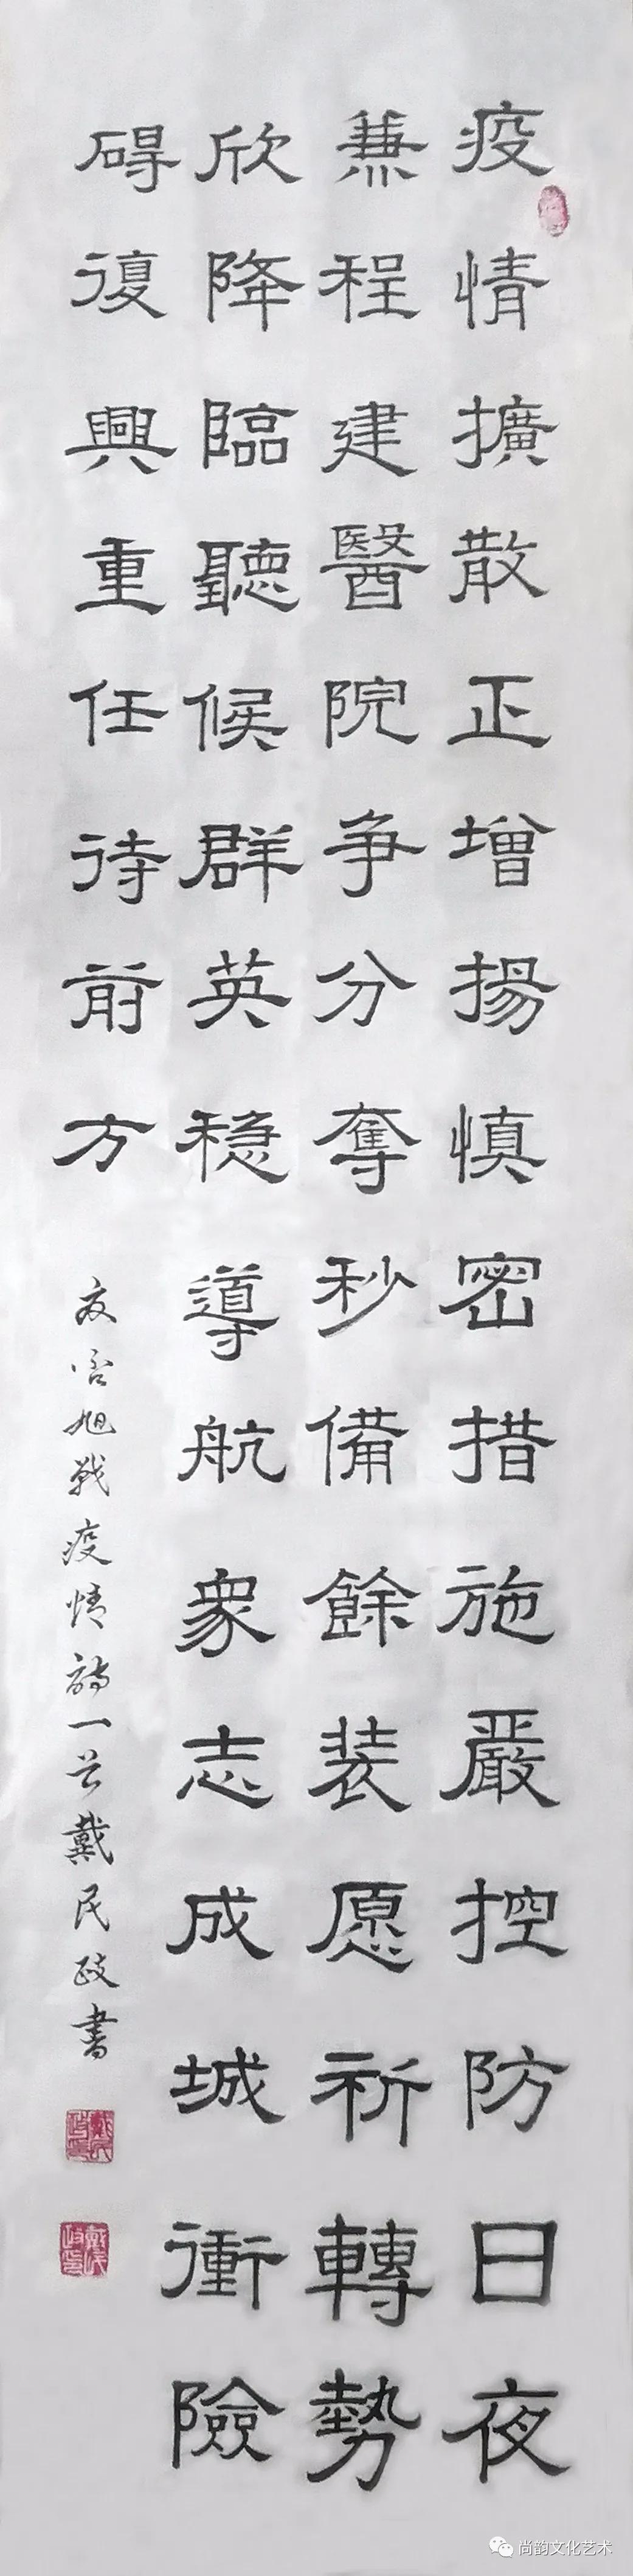 疫情擴散正增揚慎密措施嚴控防日夜
兼程建醫院争分奪秒備餘装愿祈轉勢
欣降臨聽候群英稳導航衆志成城衝險
碍復興重任待前方
友旭戰疫情詩一首戴民政書
尚韵文化艺术